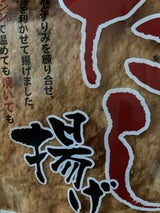 だし
揚げ
すりみを練り合せ、
を利かせて揚げました。
ジで温めても焼いても